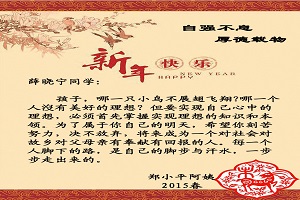 自强不息
厚德载物
新年 快乐
HAPPY NEW YEAR
薛晓宁同学:
孩子,哪一只小鸟不展翅飞翔?哪一个
人没有美好的理想?但要去实现自己心中的
理想,必须首先掌握实现理想的知识和本
领。为了属于你自己的明天,希望你刻苦
努力,决不放弃,将来成为一个对社会对
故乡对父母亲有奉献有回报的人。每一个
人脚下的路,是自己的脚步与汗水,一步
步走出来的。
郑小平阿姨
2015春